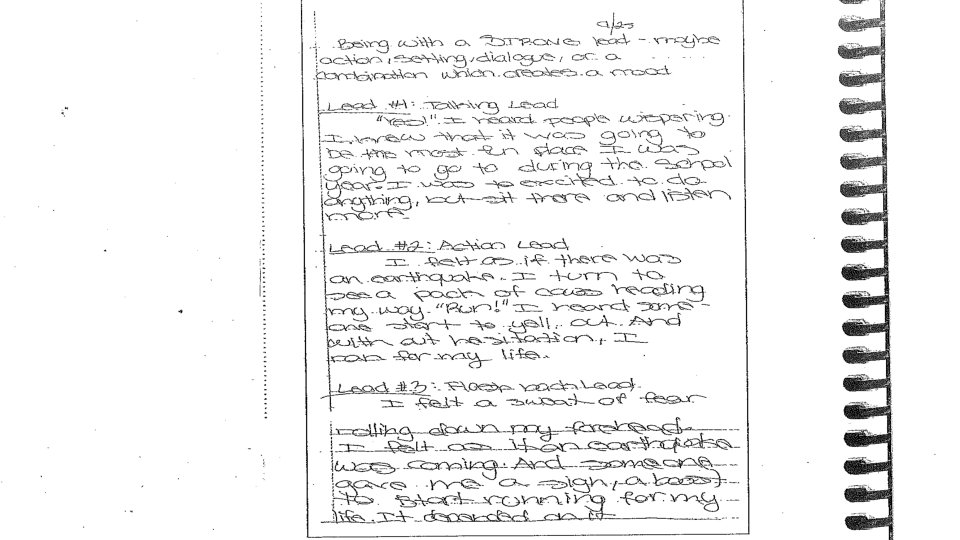 9/25
Being with a STRONG lead - maybe
action, setting, dialogue, or a
combination which creates a mood
Lead #1: Talking Lead
"Yes!" I heard people wispering.
I knew that it was going to
be the most fun place I was
going to go to during the school
year. I was to excited to do
anything, but sit there and listen
more.
Lead #2: Action Lead
I felt as if there was
an earthquake. I turn to
see a pack of cows heading
my way. "Run!" I heard some-
one start to yell out. And
with out hesitation, I
ran for my life.
Lead #3: Flash back Lead
I felt a sweat of fear
rolling down my forehead.
I felt as if an earthquake
was coming. And someone
gave me a sign, a
to start running for my
life. It depended on it